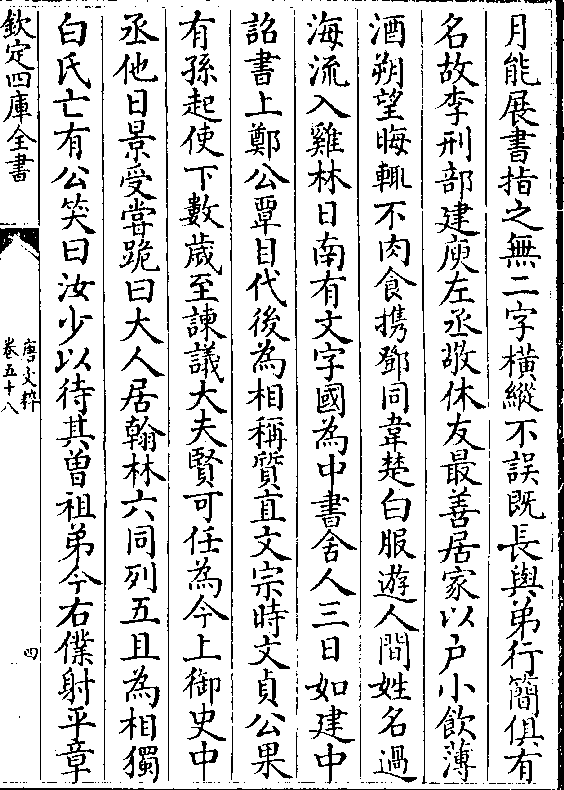 月能展書指之無二字橫縱不誤既長與弟行簡俱有
名故李刑部建庾左丞敬休友最善居家以户小飲薄
酒朔望晦輒不肉食携鄧同韋楚白服遊人間姓名過
海流入雞林日南有文字國為中書舍人三日如建中
詔書上鄭公覃自代後為相稱質直文宗時文貞公果
有孫起使下數歲至諫議大夫賢可任為今上御史中
丞他日景受嘗跪曰大人居翰林六同列五且為相獨
白氏亡有公笑曰汝少以待其曾祖弟今右僕射平章
欽定四庫全書
唐文粹
卷五十八
四